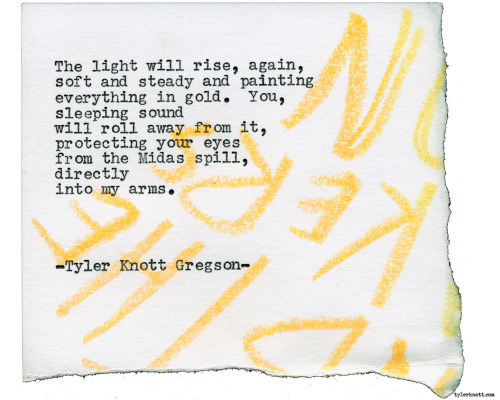 The light will rise, again,
soft and steady and painting
everything in gold.  You,
sleeping sound
will roll away from it,
protecting your eyes
from the Midas spill,
directly
into my arms.
-Tyler Knott Gregson-
tylerknott.com